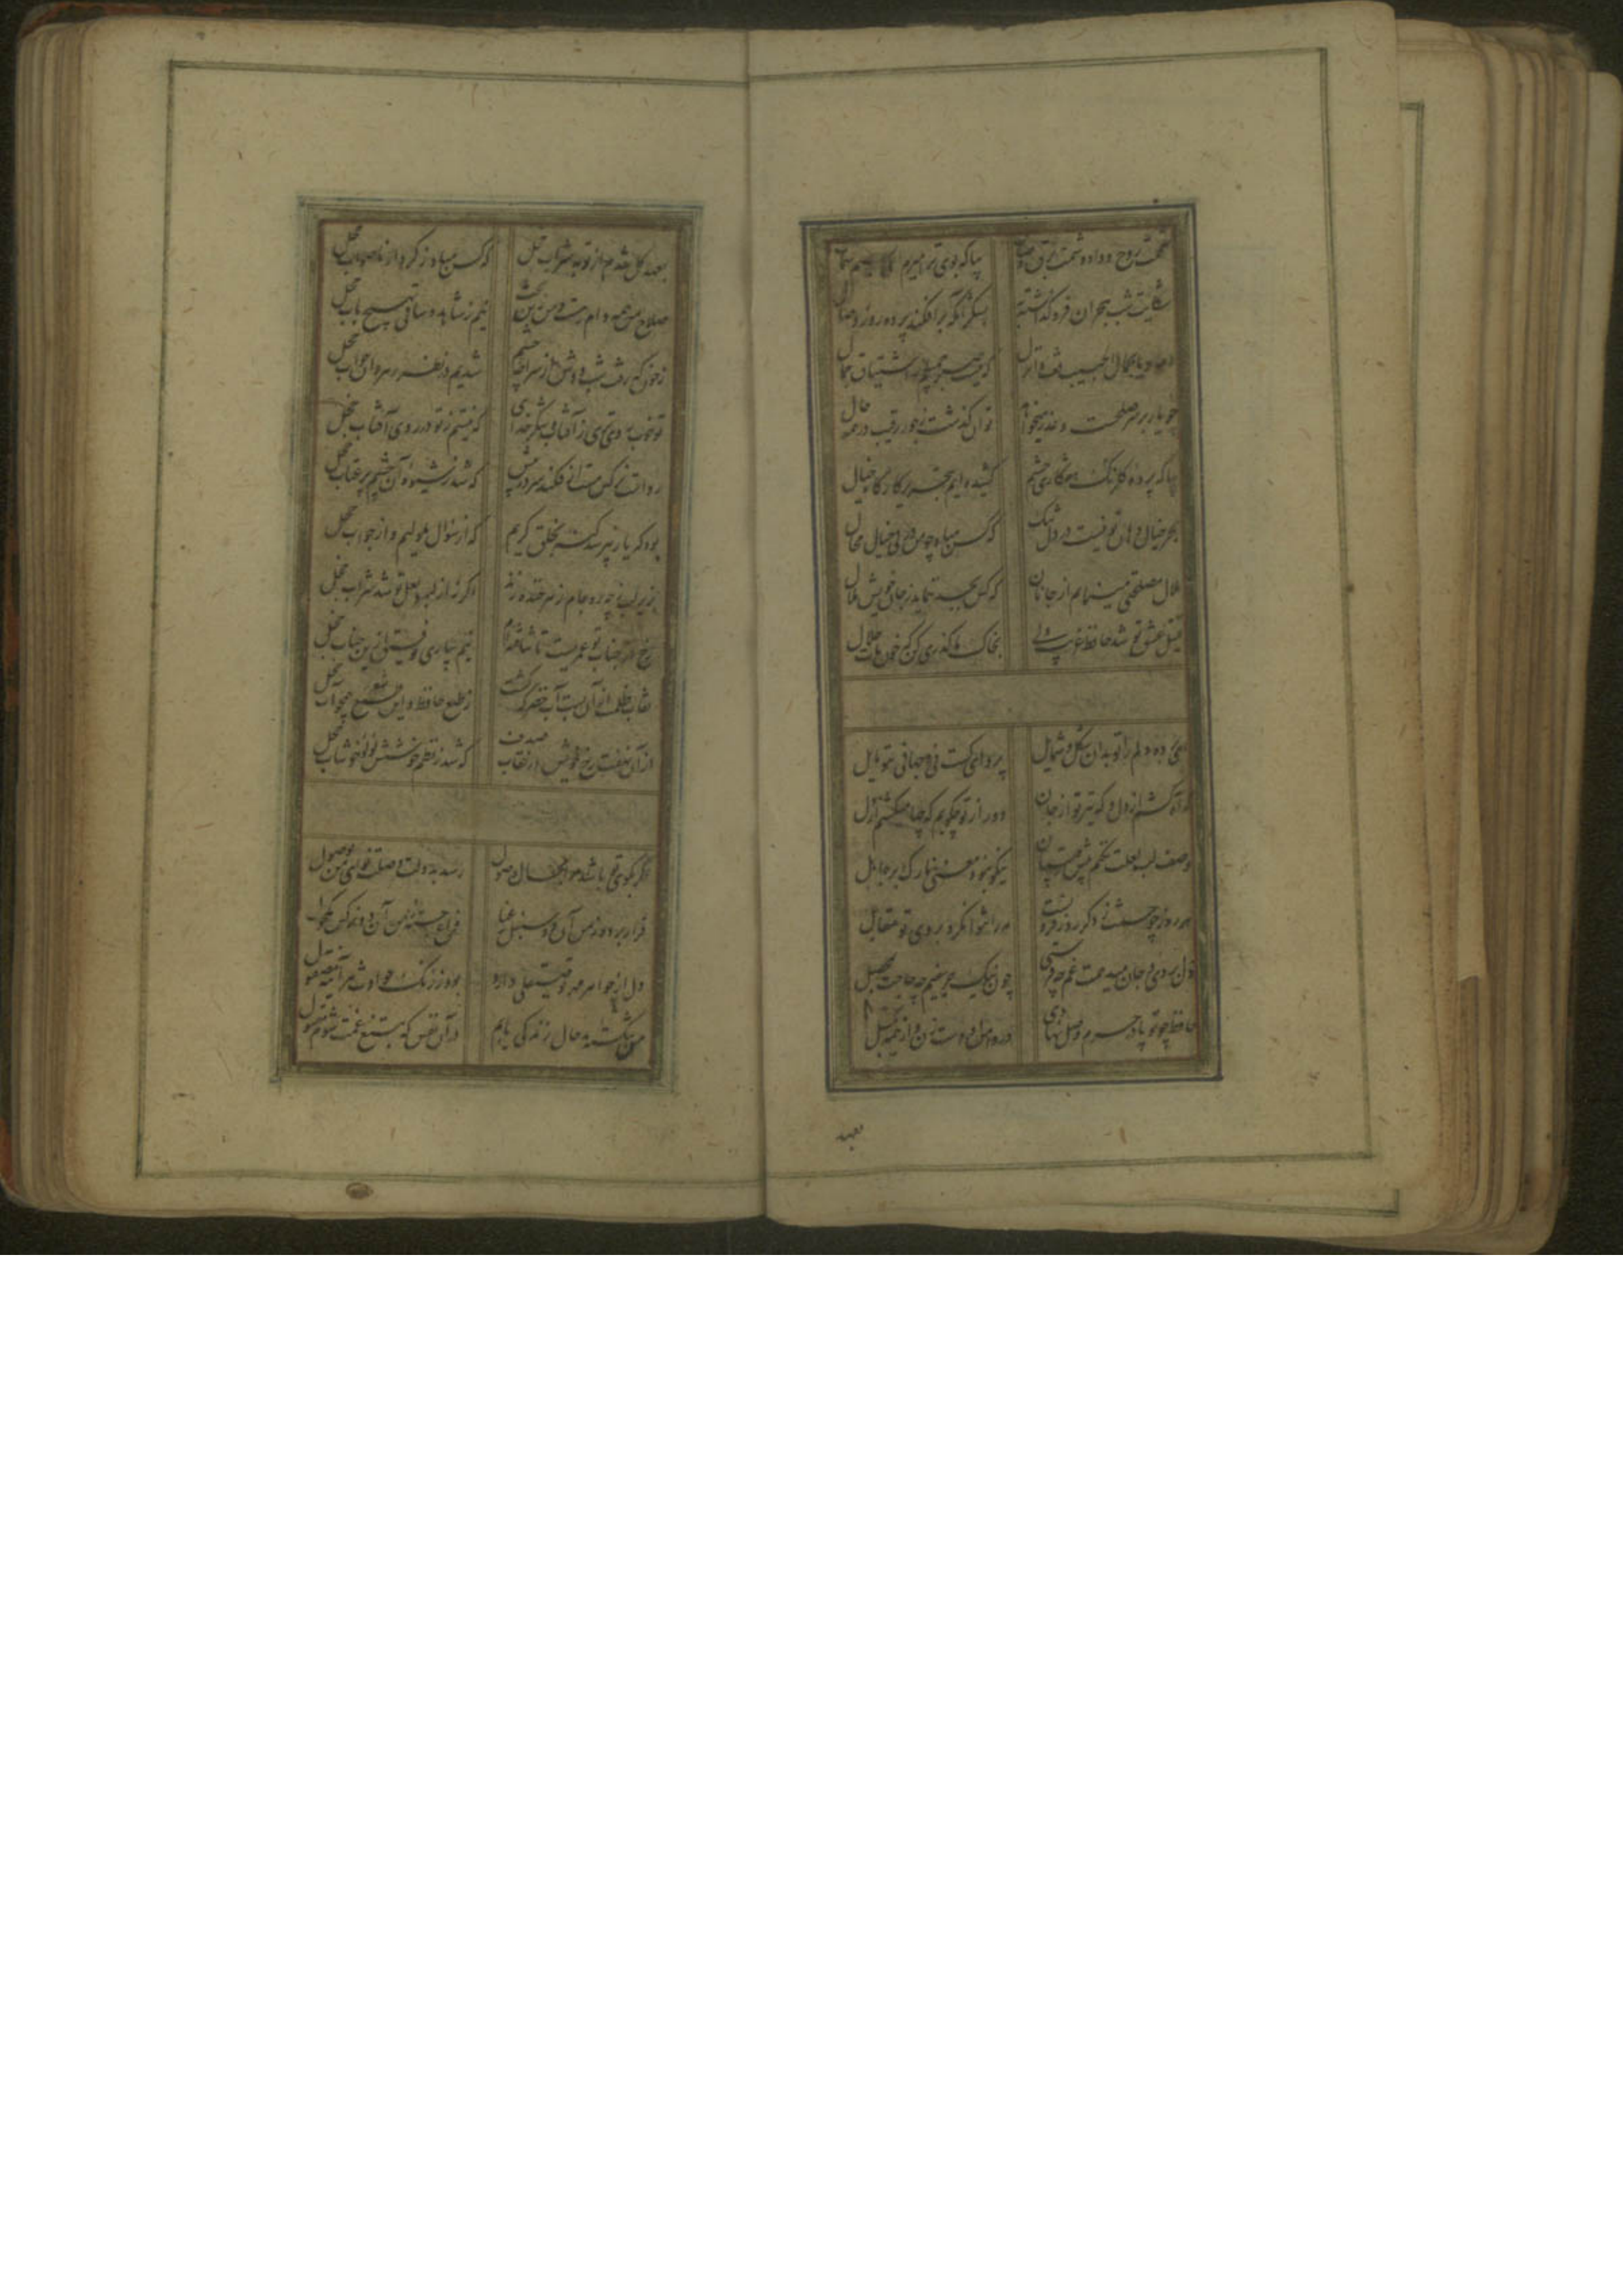 شممت روح وداد و شمت برق وصال بیا که بوی ترا میرم ای نسیم شمال
شکایت شب هجران فرو گذاشته به بشکر آنکه برافکند پرده روز وصال
که نیست صبر جمیلم در اشتیاق جمال
چو یار بر سر صلحست و عذر میخواهد توان گذشت ز جور رقیب در همه حال
بیا که پرده گلریز هفت کاری چشم کشیده ایم بتحریر کارگاه خیال
بجز خیال دهان تو نیست در دل تنگ که کس مباد چو من در پی خیال محال
ملال مصلحتی مینمایم از جانان که کس بجد ننماید ز جان خویش ملال
قتیل عشق تو شد حافظ غریب ولی بخاک ما گذری کن که خون مات حلال
ای برده دلم را تو بدان شکل و شمایل پروای کست نی و جهانی بتو مایل
گه آه کشم از دل و گه تیر تو از جان دور از تو چگویم که چها میکشم از دل
وصف لب لعلت چکنم پیش رقیبان نیکو نبود معنی نازک بر جاهل
هر روز چو حسنت ز دگر روز فزونست مه را نتوان کرد بروی تو مقابل
دل بردی و جان میدهمت غم چه فرستی چون نیک غمینیم چه حاجت بمحصل
حافظ چو تو پا در حرم وصل نهادی در دامن او دست زن و از همه بگسل
بعهد
بعهد گل شدم از توبه شراب خجل که کس مباد ز کردار ناصواب خجل
صلاح من همه دام رهست و من زین بحث نیم ز شاهد و ساقی بهیچ باب خجل
ز خون که رفت شب دوش از سراچه چشم شدیم در نظر رهروان خواب خجل
تو خوب رویتری از آفتاب و شکر خدا که نیستم ز تو در روی آفتاب خجل
رواست نرگس مست ار فکند سر در پیش که شد ز شیوه آن چشم پر عتاب خجل
بود که یار نپرسد گنه ز خلق کریم که از سؤال ملولیم و از جواب خجل
چرا بزیر لب جام زهر خنده زند اگر نه از لب لعل تو شد شراب خجل
رخ از جناب تو عمریست تا نتافته‌ام نیم بیاری توفیق ازین جناب خجل
نقاب ظلمت از آن بست آب خضر که گشت ز طبع حافظ و این شعر همچو آب خجل
از آن نهفت رخ خویش در نقاب صدف که شد ز نظم خوشش لؤلؤ خوشاب خجل
اگر بکوی تو باشد مرا مجال وصول رسد بدولت وصلت نوای من بحصول
قرار برده ز من آن دو سنبل رعنا فراغ برده ز من آن دو نرگس مکحول
دل از جواهر مهرت چو صیقلی دارد بود ز زنگ حوادث هر آینه مصقول
من شکسته بدحال زندگی یابم در آن نفس که بتیغ غمت شوم مقتول